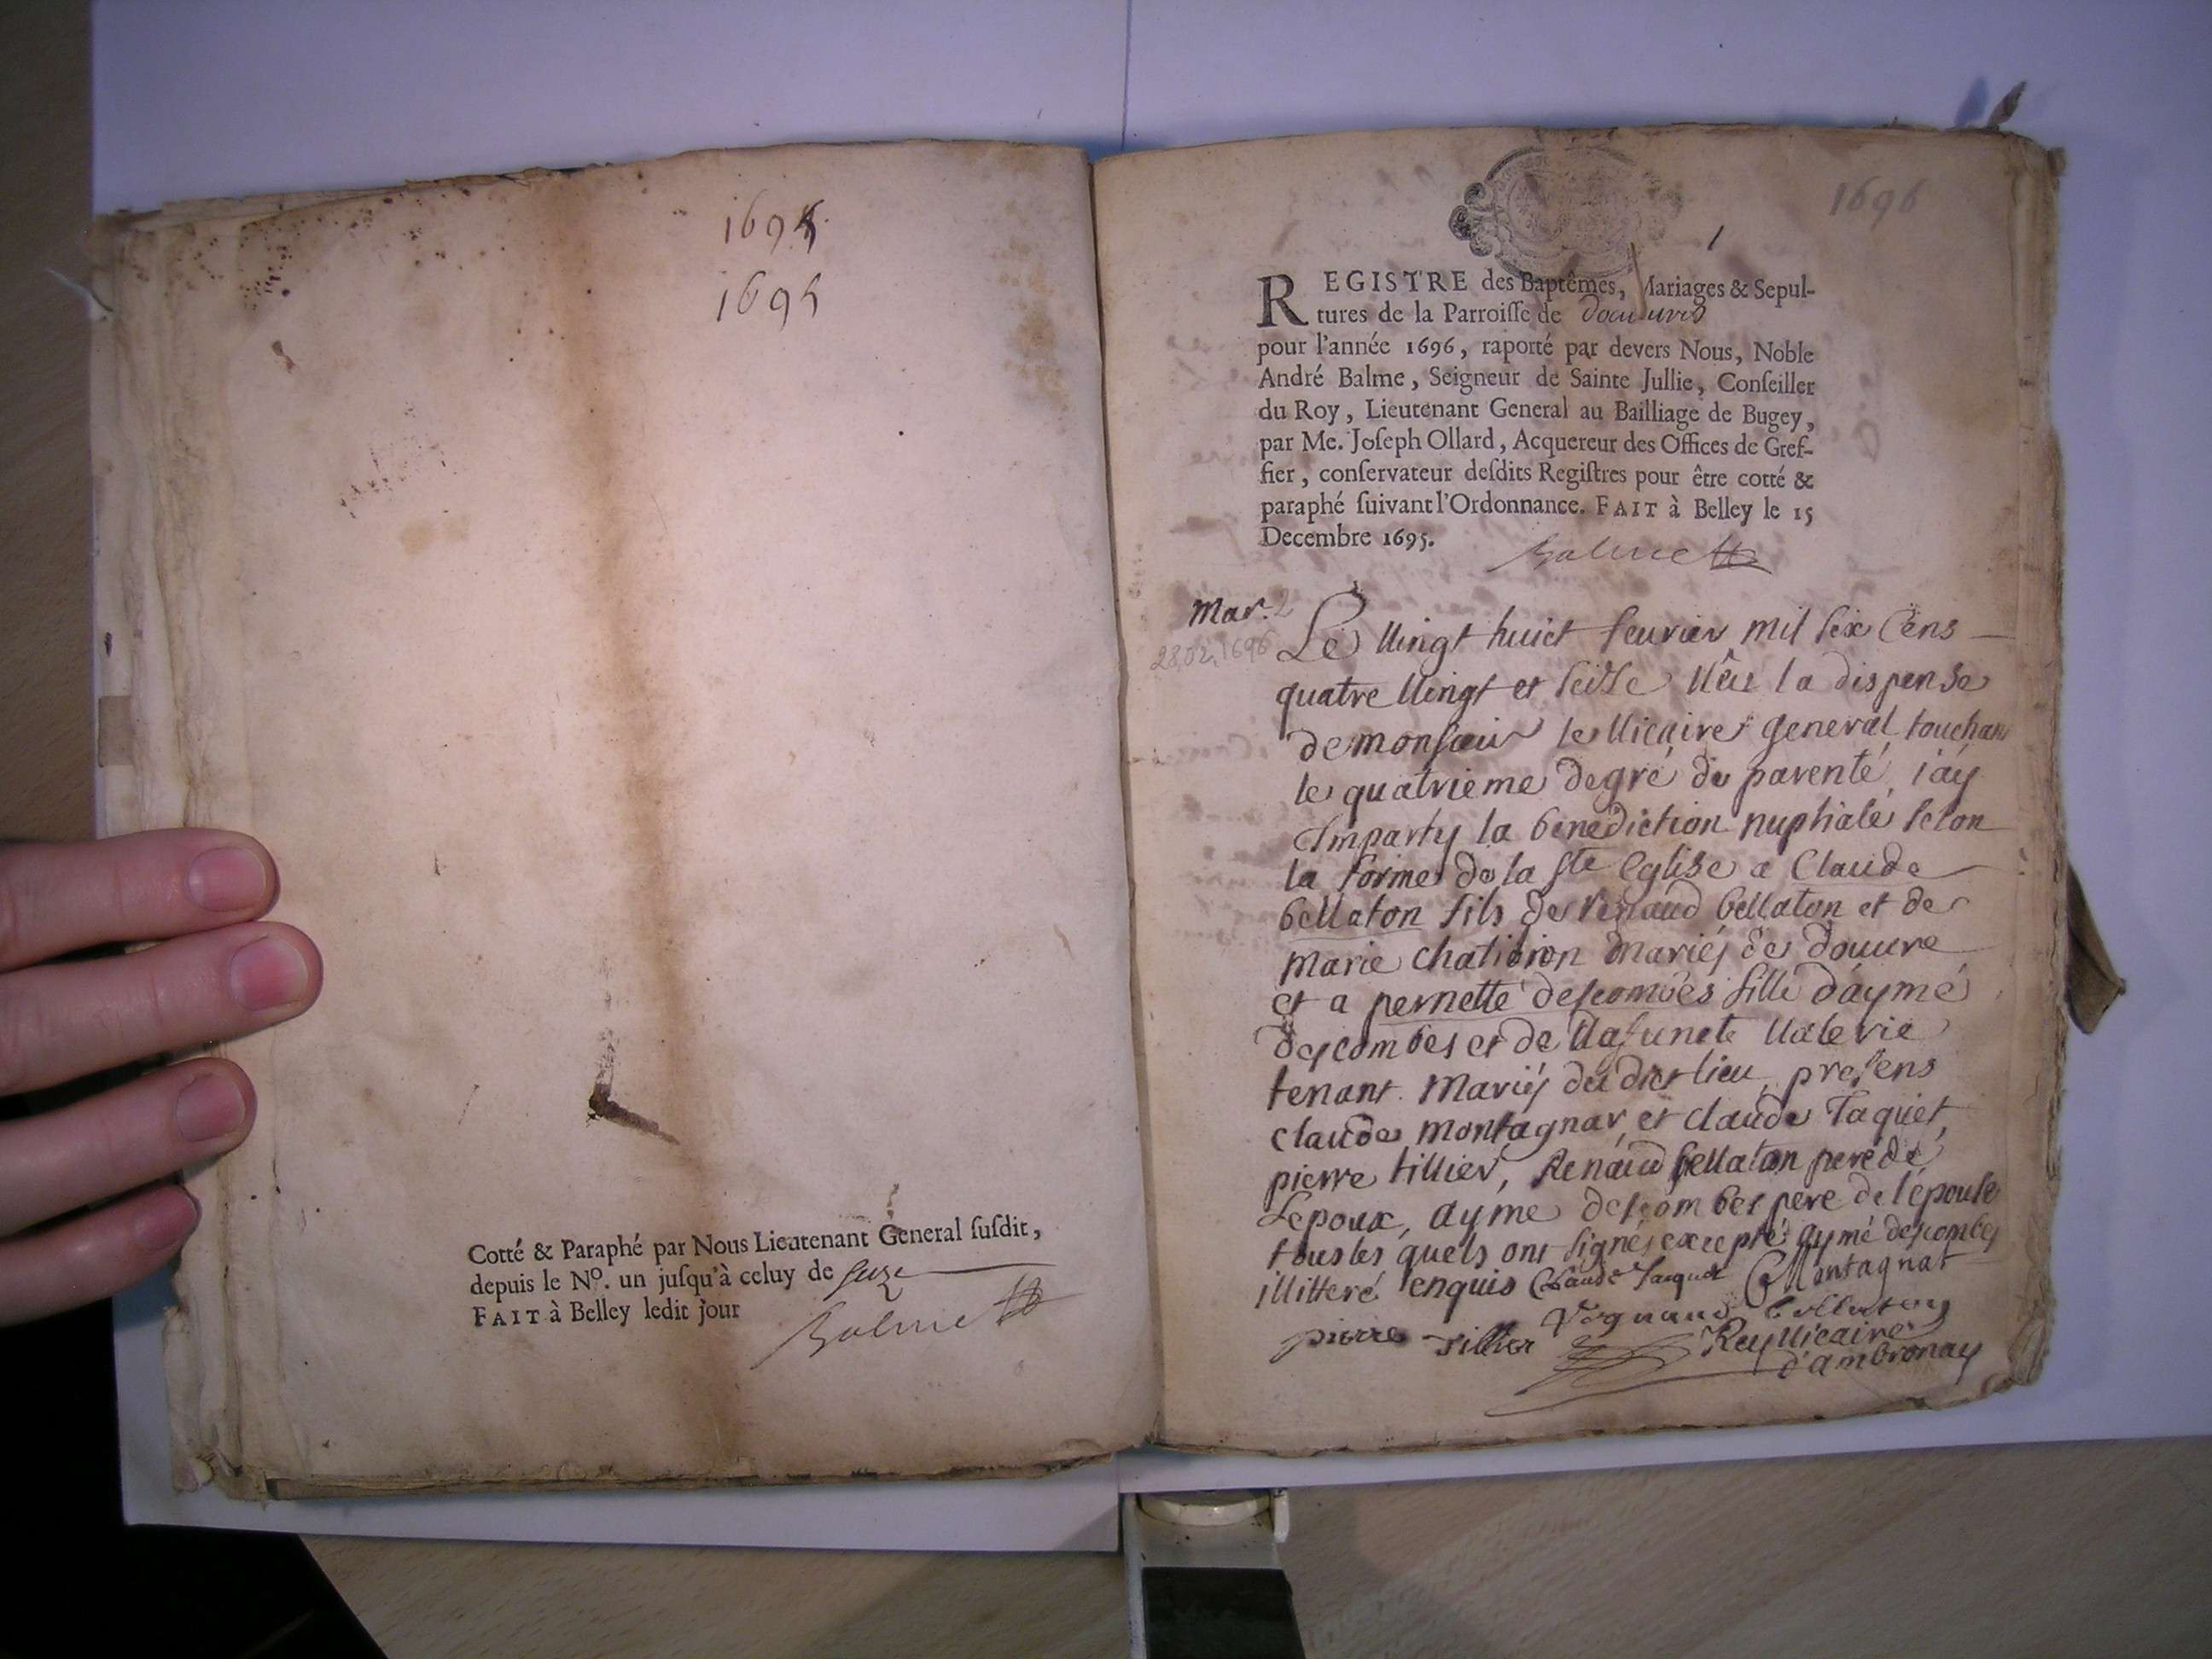 1695
1695
Cotté & Paraphé par Nous Lieutenant General ſuſdit,
depuis le Nº. un juſqu'à celuy de
FAIT à Belley ledit jour
Balme
1696
1
REGISTRE des Baptêmes, Mariages & Sepul-
tures de la Parroiſſe de douures
pour l'année 1696, raporté par devers Nous, Noble
André Balme, Seigneur de Sainte Jullie, Conſeiller
du Roy, Lieutenant General au Bailliage de Bugey,
par Me. Joſeph Ollard, Acquereur des Offices de Gref-
fier, conſervateur deſdits Regiſtres pour être cotté &
paraphé ſuivant l'Ordonnance. FAIT à Belley le 15
Decembre 1695.
Balme
Mar. 2
28.02.1696
Le Vingt huict feurier mil six Cens
quatre Vingt et seize Vêu la dispense
de monsieur le Vicaire general touchant
le quatrieme degré de parenté, i'ay
Imparty la benediction nuptiale selon
la forme de la ste Eglise a Claude
bellaton fils de renaud bellaton et de
Marie chatibion mariés de douure
et a pernette descombes fille d'aymé
descombes et de la funete Valerie
tenant mariés du dict lieu, presens
claude montagnat, et claude Taquet,
pierre tillier, Renaud bellaton pere de
Lepoux, aymé descombes pere de l'epouse
tous les quels ont signés excepté aymé descombes
illitteré enquis Claude Jaquet C Montagnat
pierre Tillier Regnaud bellaton
Rey Vicaire
d'ambronay